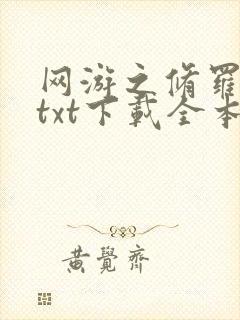 网游之脩羅
txt下載全本
黃覺齊